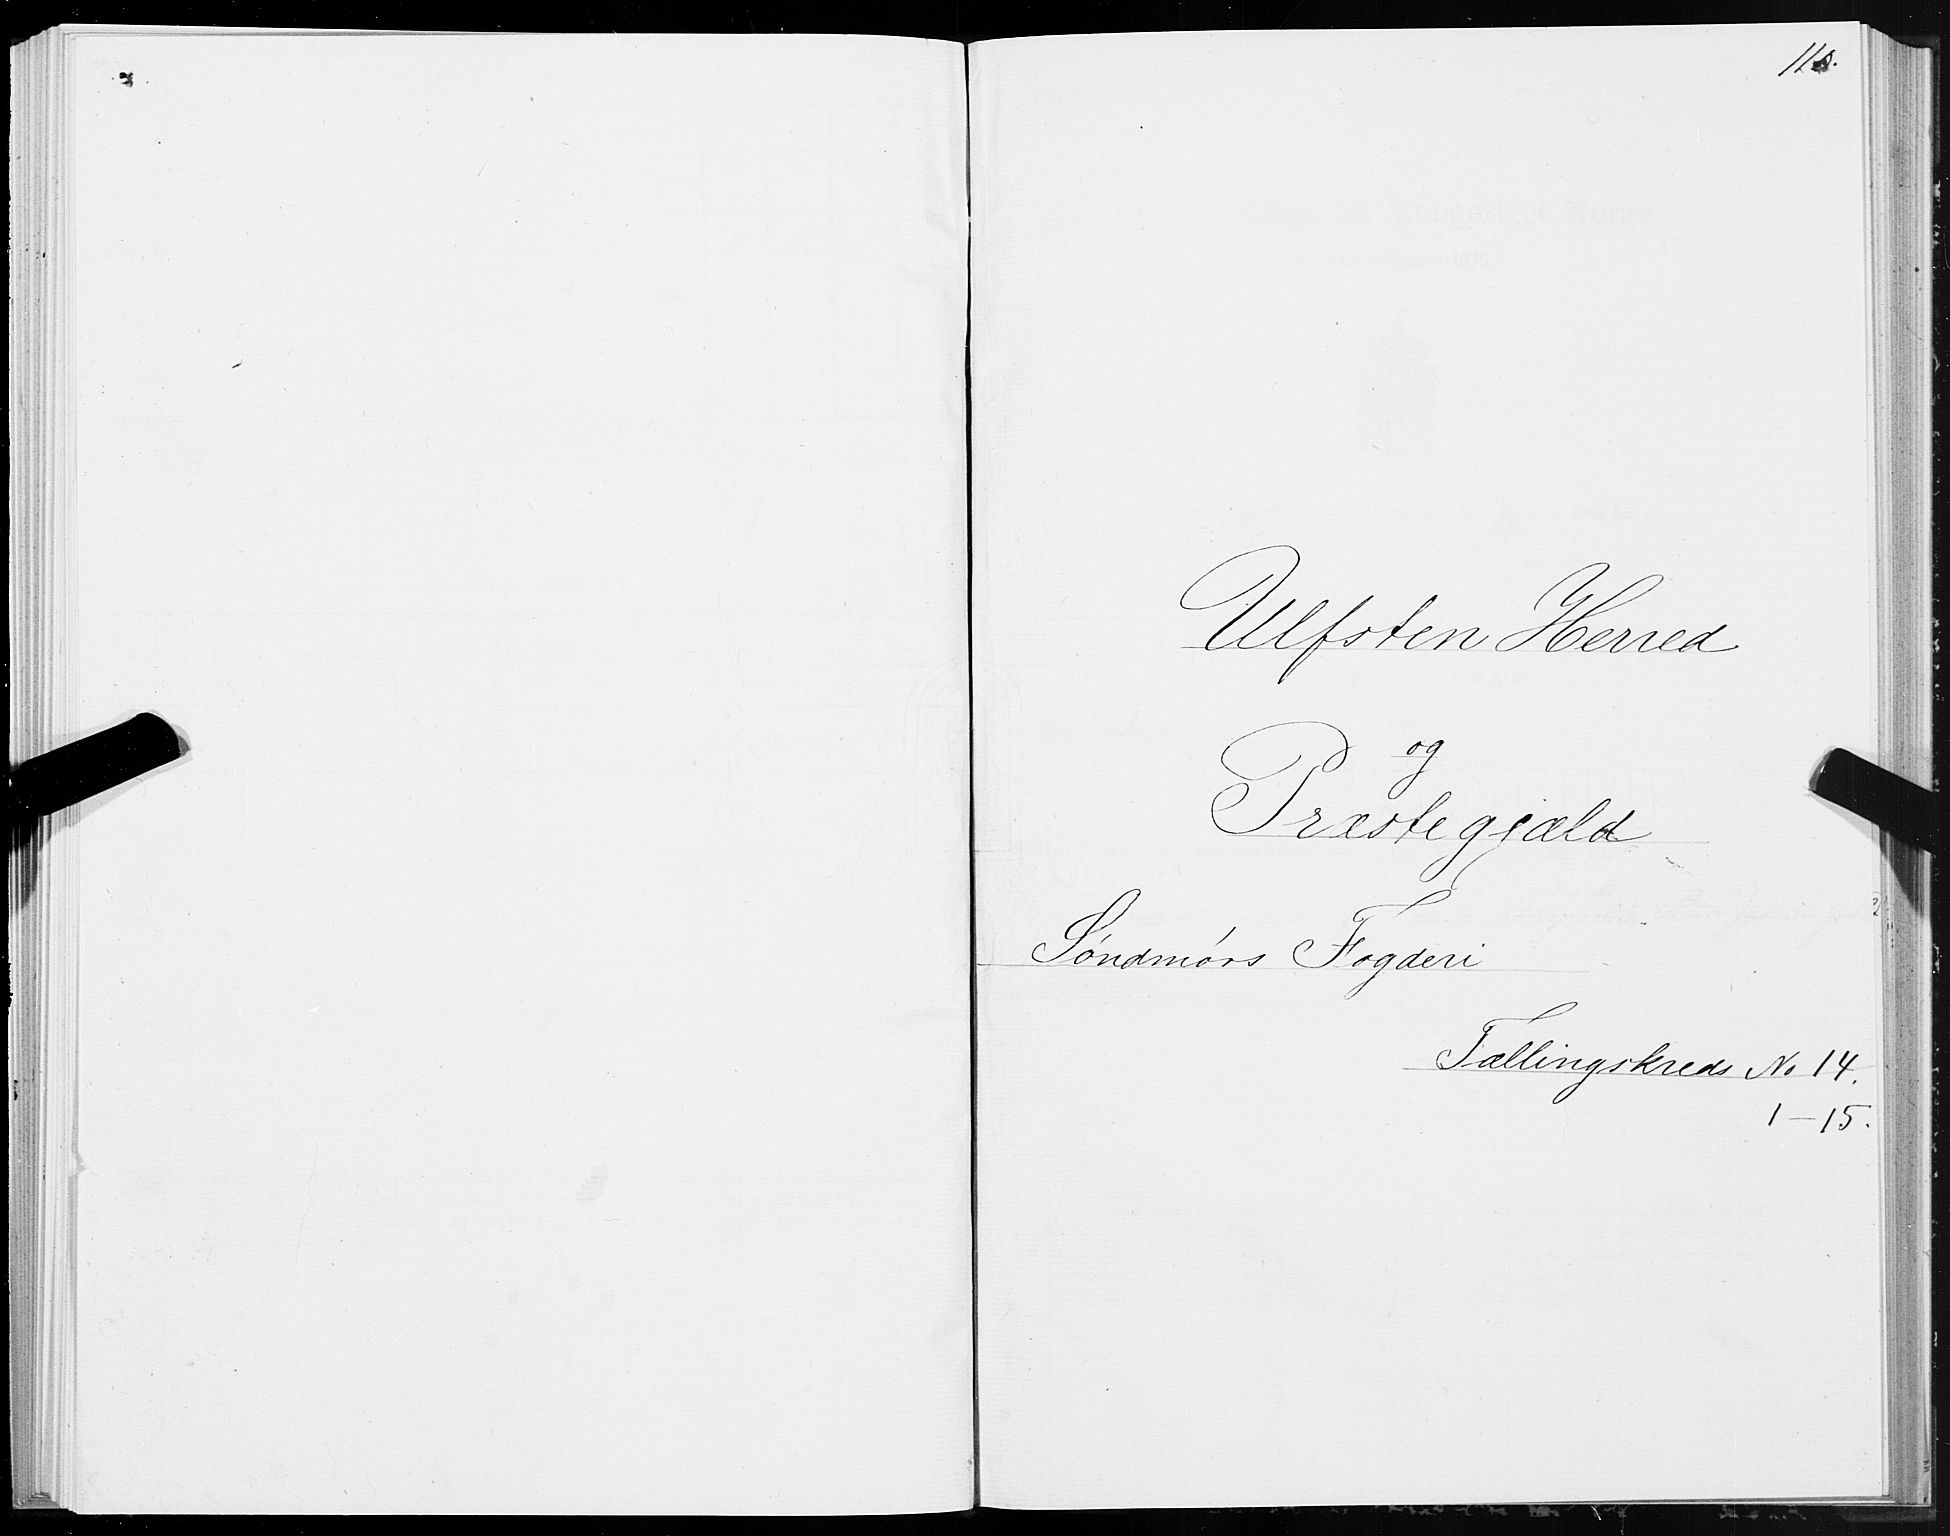 Ulfsten Herred
og
Præstegjæld
Søndmørs Fogderi
Tællingskreds No 14.
1-15.